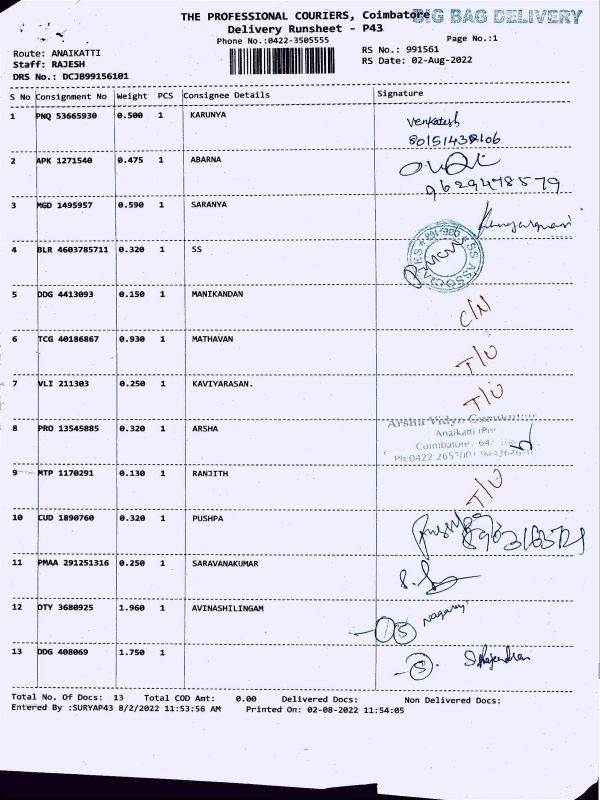 THE PROFESSIONAL COURIERS, Coimbatore BIG BAG DELIVERY
Delivery Runsheet - P43
Phone No.:0422-3505555 Page No.:1
Route: ANAIKATTI RS No.: 991561
Staff: RAJESH RS Date: 02-Aug-2022
DRS No.: DCJB99156101
S No Consignment No Weight PCS Consignee Details Signature
1 PNQ 53665930 0.500 1 KARUNYA Venkatesh
2 APK 1271540 0.475 1 ABARNA
9629478579
3 MGD 1495957 0.590 1 SARANYA
4 BLR 4603785711 0.320 1 SS
SS ASSOCIATES
5 DDG 4413093 0.150 1 MANIKANDAN C/N
6 TCG 40186867 0.930 1 MATHAVAN T/U
7 VLI 211303 0.250 1 KAVIYARASAN. T/U
8 PRO 13545885 0.320 1 ARSHA Arsha Vidya Gurukulam
Anaikatti (Po)
Coimbatore
Ph:0422
9 MTP 1170291 0.130 1 RANJITH T/U
10 CUD 1890760 0.320 1 PUSHPA
11 PMAA 291251316 0.250 1 SARAVANAKUMAR
12 OTY 3680925 1.960 1 AVINASHILINGAM Nagaraj
13 DDG 408069 1.750 1 S. Rajendran
Total No. Of Docs: 13 Total COD Amt: 0.00 Delivered Docs: Non Delivered Docs:
Entered By :SURYAP43 8/2/2022 11:53:56 AM Printed On: 02-08-2022 11:54:05